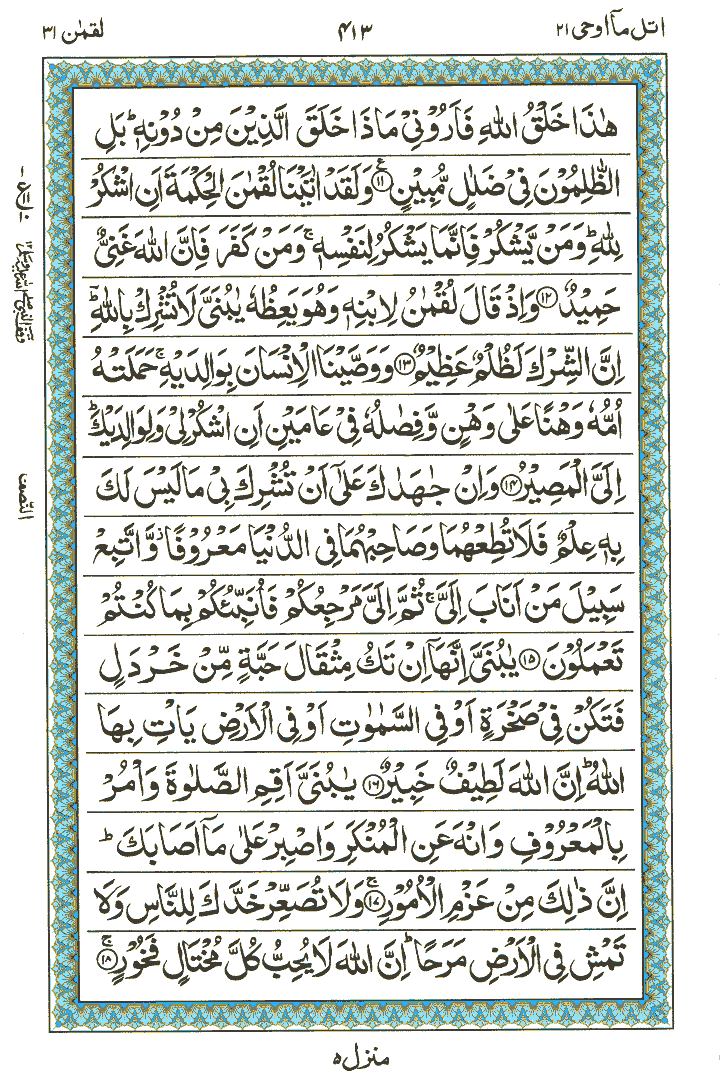 اتل مآ اوحی ۲۱
۴۱۳
لقمٰن ۳۱
هٰذَا خَلْقُ اللّٰهِ فَاَرُوْنِیْ مَاذَا خَلَقَ الَّذِیْنَ مِنْ دُوْنِهٖ ؕ بَلِ
الظّٰلِمُوْنَ فِیْ ضَلٰلٍ مُّبِیْنٍ ﴿۱۱﴾ وَلَقَدْ اٰتَیْنَا لُقْمٰنَ الْحِكْمَةَ اَنِ اشْكُرْ
لِلّٰهِ ؕ وَمَنْ یَّشْكُرْ فَاِنَّمَا یَشْكُرُ لِنَفْسِهٖ ۚ وَمَنْ كَفَرَ فَاِنَّ اللّٰهَ غَنِیٌّ
حَمِیْدٌ ﴿۱۲﴾ وَاِذْ قَالَ لُقْمٰنُ لِابْنِهٖ وَهُوَ یَعِظُهٗ یٰبُنَیَّ لَا تُشْرِكْ بِاللّٰهِ ؕ
اِنَّ الشِّرْكَ لَظُلْمٌ عَظِیْمٌ ﴿۱۳﴾ وَوَصَّیْنَا الْاِنْسَانَ بِوَالِدَیْهِ ۚ حَمَلَتْهُ
اُمُّهٗ وَهْنًا عَلٰی وَهْنٍ وَّفِصٰلُهٗ فِیْ عَامَیْنِ اَنِ اشْكُرْ لِیْ وَلِوَالِدَیْكَ ؕ
اِلَیَّ الْمَصِیْرُ ﴿۱۴﴾ وَاِنْ جٰهَدٰكَ عَلٰۤی اَنْ تُشْرِكَ بِیْ مَا لَیْسَ لَكَ
بِهٖ عِلْمٌ فَلَا تُطِعْهُمَا وَصَاحِبْهُمَا فِی الدُّنْیَا مَعْرُوْفًا ؗ وَّاتَّبِعْ
سَبِیْلَ مَنْ اَنَابَ اِلَیَّ ۚ ثُمَّ اِلَیَّ مَرْجِعُكُمْ فَاُنَبِّئُكُمْ بِمَا كُنْتُمْ
تَعْمَلُوْنَ ﴿۱۵﴾ یٰبُنَیَّ اِنَّهَاۤ اِنْ تَكُ مِثْقَالَ حَبَّةٍ مِّنْ خَرْدَلٍ
فَتَكُنْ فِیْ صَخْرَةٍ اَوْ فِی السَّمٰوٰتِ اَوْ فِی الْاَرْضِ یَاْتِ بِهَا
اللّٰهُ ؕ اِنَّ اللّٰهَ لَطِیْفٌ خَبِیْرٌ ﴿۱۶﴾ یٰبُنَیَّ اَقِمِ الصَّلٰوةَ وَاْمُرْ
بِالْمَعْرُوْفِ وَانْهَ عَنِ الْمُنْكَرِ وَاصْبِرْ عَلٰی مَاۤ اَصَابَكَ ؕ
اِنَّ ذٰلِكَ مِنْ عَزْمِ الْاُمُوْرِ ۚ﴿۱۷﴾ وَلَا تُصَعِّرْ خَدَّكَ لِلنَّاسِ وَلَا
تَمْشِ فِی الْاَرْضِ مَرَحًا ؕ اِنَّ اللّٰهَ لَا یُحِبُّ كُلَّ مُخْتَالٍ فَخُوْرٍ ۚ﴿۱۸﴾
النّصف
منزل ۵